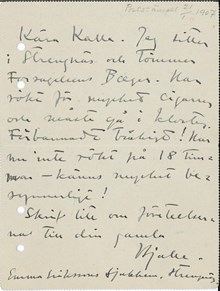 Poststämpel 21/1 1907
Kära Kalle. Jag sitter
i Strengnäs och tömmer
Forsagelsens Bæger. Har
rökt för mycket cigarrer
och måste gå i kloster.
Förbannadt tråkigt! Har
nu inte rökt på 18 timmar
– känns mycket be-
synnerligt!
Skrif lite om företeelser-
na till din gamla
Hjalle.
Emma Erikssons Sjukhem, Strengnäs